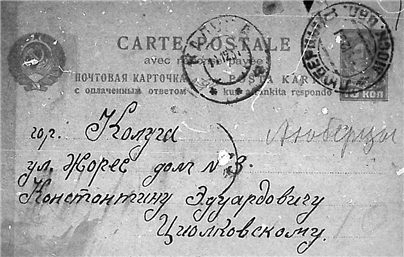 CARTE POSTALE
avec réponse payée
ПОЧТОВАЯ КАРТОЧКА POŜTA KARTO
с оплаченным ответом kun afrankita respondo
КАЛУГА
ЛЮБЕРЦЫ МОСК.
15 КОП
гор. Калуга
Люберцы
ул. Жорес дом № 3.
Константину Эдуардовичу
Циолковскому.